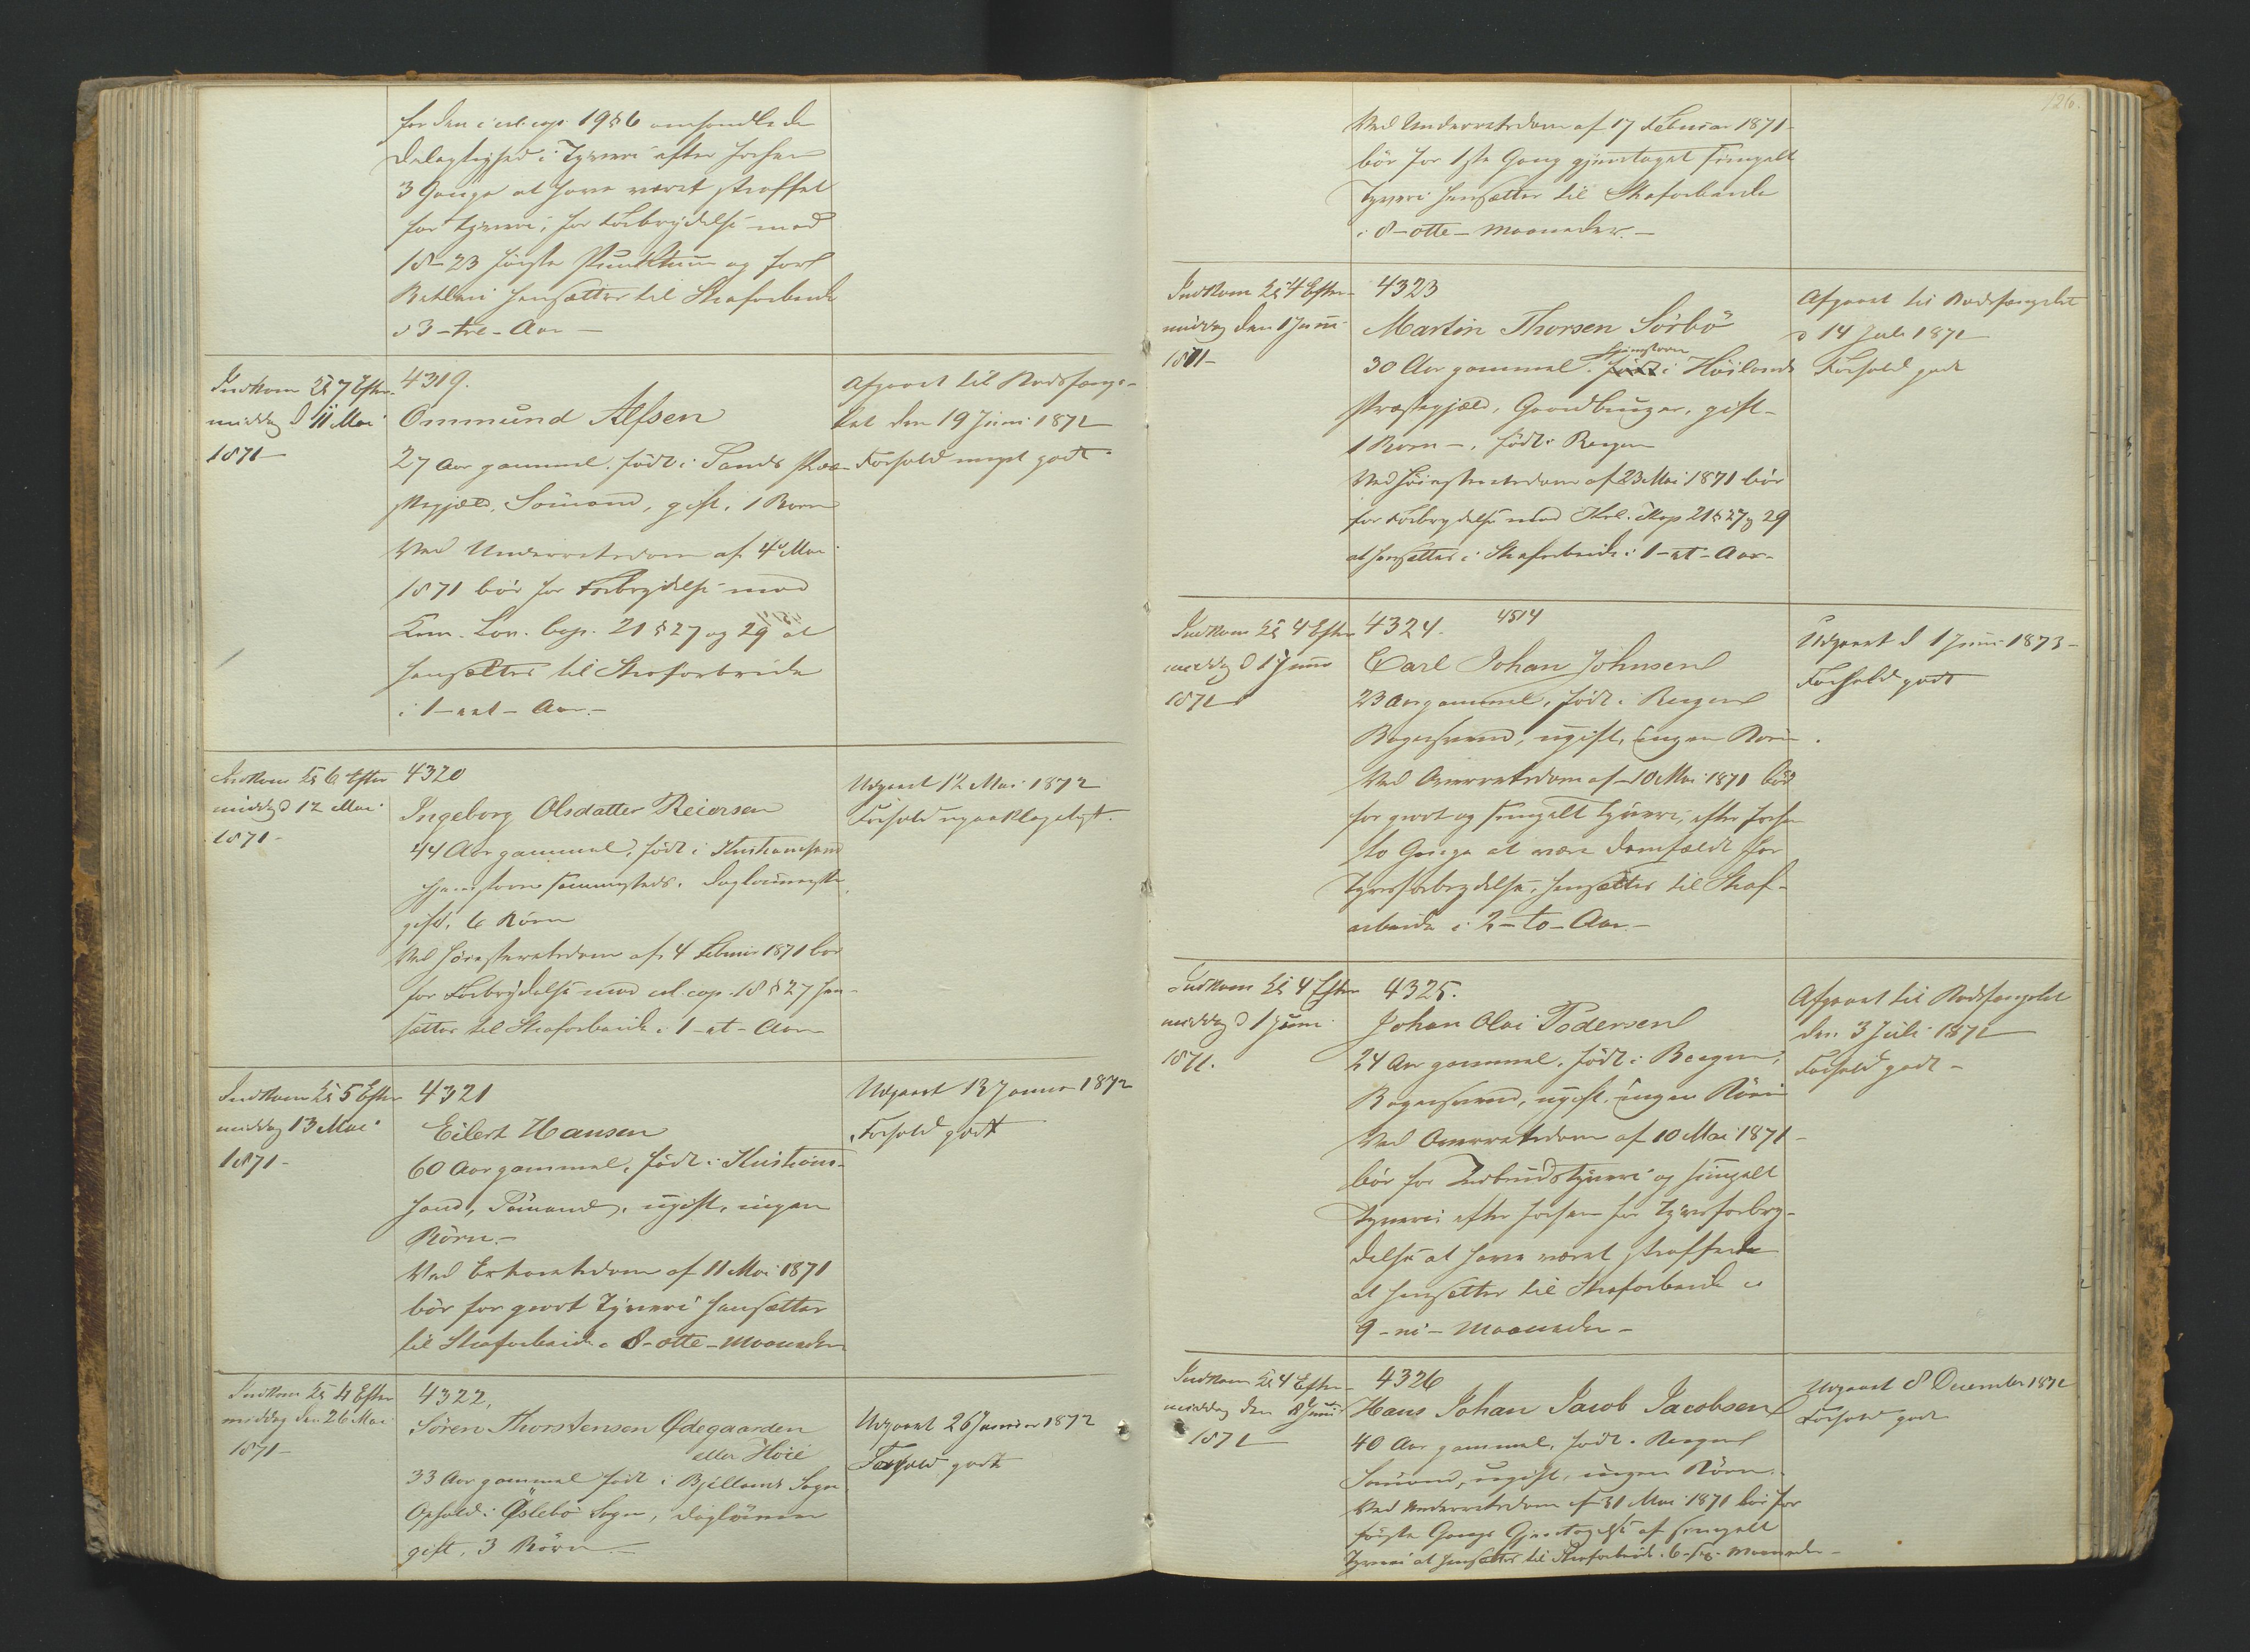 for den i crl. cap. 19 § 6 omhandlede
Delagtighed i Tyveri efter forhen
3 Gange at have været straffet
for Tyveri, for Forbrydelse mod
18-23 første Punktum og for
Betleri hensættes til Strafarbeide
i 3-tre-Aar
Indkom Kl 7 Efter-
middag d 11 Mai
1871
4319.
Ommund Alfsen
27 Aar gammel, født i Sands Præ-
stegjæld, Sømand, gift, 1 Barn
Ved Underretsdom af 4 Mai
1871 bør for Forbrydelse mod
Krim. Lov. Cap. 21 § 27 og 29 at
hensættes til Strafarbeide
i 1-eet-Aar.-
Afgaaet til Bodsfæng-
slet den 19 Juni 1871
Forhold meget godt
Indkom Kl 6 Efter
middag d 12 Mai
1871-
4320
Ingeborg Olsdatter Reiersen
44 Aar gammel, født i Kristiansand
hjemstavn sammesteds,
gift, 6 Børn
Ved Høiesteretsdom af 4 Februar 1871 bør
for Forbrydelse mod crl. cap. 18 § 27 hen-
sættes til Strafarbeide i 1-et-Aar
Udgaaet 12 Mai 1872
Forhold upaaklageligt.
Indkom Kl 5 Efter
middag 13 Mai
1871-
4321
Eilert Hansen
60 Aar gammel, født i Kristian-
sand, Sømand, ugift, ingen
Børn.-
Ved Extraretsdom af 11 Mai 1871
bør for grovt Tyveri hensættes
til Strafarbeide i 8-otte-Maaneder
Udgaaet 13 Januar 1872
Forhold godt
Indkom Kl 4 Efter
middag den 26 Mai
1871-
4322,
Søren Thorstensen Ødegaarden
eller Høie
33 Aar gammel født i Bjellands Sogn
Ophold i Øslebø Sogn, Dagleier
gift, 3 Børn.-
Udgaaet 26 Januar 1872
Forhold godt
126.
Ved Underretsdom af 17 Februar 1871-
bør for 1ste Gang gjentaget simpelt
Tyveri hensættes til Strafarbeide
i 8-otte-Maaneder.-
Indkom Kl 4 Efter-
middag den 1 Juni
1871-
4323
Martin Thorsen Sørbø
hjemstavn
30 Aar gammel. født i Høilands
Præstegjæld, Gaardbruger, gift-
1 Barn-, født i Bergen
Ved Høiesteretsdom af 23 Mai 1871 bør
for Forbrydelse mod Krl. Kap 21 § 27 og 29
at hensættes i Strafarbeide i 1-et-Aar-
Afgaaet til Bodsfængslet
d 14 Juli 1871
Forhold godt
Indkom Kl 4 Efter
middag d 1 Juni
1871
4324. 4514
Carl Johan Johnsen
23 Aar gammel, født i Bergen
Bagersvend, ugift, ingen Børn.
Ved Overretsdom af 10 Mai 1871 bør
for grovt og simpelt Tyveri, efter forhen
to Gange at være domfældt for
Tyvsforbrydelse, hensættes til Straf-
arbeide i 2-to-Aar-
Udgaaet d 1 Juni 1873-
Forhold godt
Indkom Kl 4 Efter
middag d 1 Juni
1871.
4325.
Johan Olai Pedersen
24 Aar gammel, født i Bergen,
Bagersvend, ugift, ingen Børn
Ved Overretsdom af 10 Mai 1871-
bør for Indbrudstyveri og simpelt
Tyveri efter forhen for Tyvsforbry-
delse at have været straffede
at hensættes til Strafarbeide i
9-ni-Maaneder-
Afgaaet til Bodsfængslet
den 3 Juli 1871
Forhold godt-
Indkom Kl 4 Efter-
middag den 8 Juni
1871
4326
Hans Johan Jacob Jacobsen
40 Aar gammel, født i Bergen
Sømand, ugift, ingen Børn.
Ved Underretsdom af 31 Mai 1871 bør for
første Gangs Gjentagelse af simpelt
Tyveri at hensættes til Strafarbeide i 6-sex-Maaneder-
Udgaaet 8 December 1871
Forhold godt